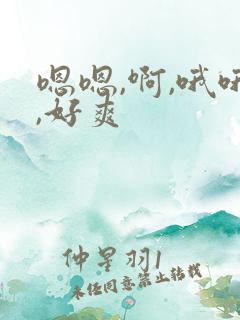 嗯嗯,啊,哦哦
,好爽
仲星羽1
未经同意禁止转载